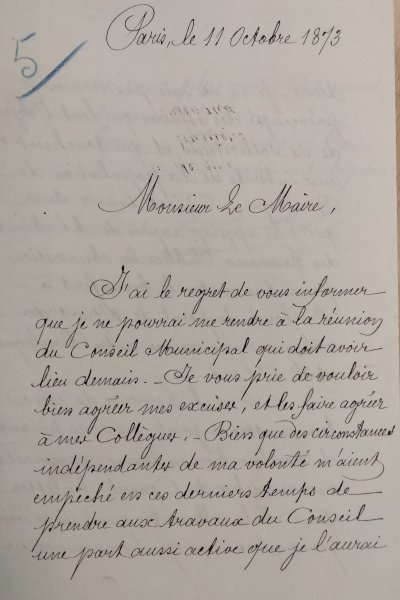 5
Paris, le 11 Octobre 1873
Monsieur Le Maire,
J'ai le regret de vous informer
que je ne pourrai me rendre à la réunion
du Conseil Municipal qui doit avoir
lieu demain. _ Je vous prie de vouloir
bien agréer mes excuses, et les faire agréer
à mes Collègues. _ Bien que des circonstances
indépendantes de ma volonté m'aient
empêché en ces derniers temps de
prendre aux travaux du Conseil
une part aussi active que je l'aurai